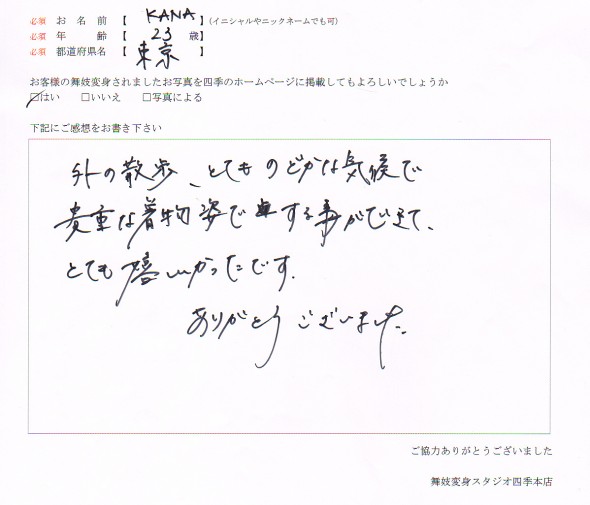 必須 お名前 【 KANA 】(イニシャルやニックネームでも可)
必須 年齢 【 23 歳】
必須 都道府県名 【 東京 】
お客様の舞妓変身されましたお写真を四季のホームページに掲載してもよろしいでしょうか
☑はい □いいえ □写真による
下記にご感想をお書き下さい
外の散歩、とてものどかな気候で
貴重な着物姿で する事ができて、
とても嬉しかったです.
ありがとうございました.
ご協力ありがとうございました
舞妓変身スタジオ四季本店